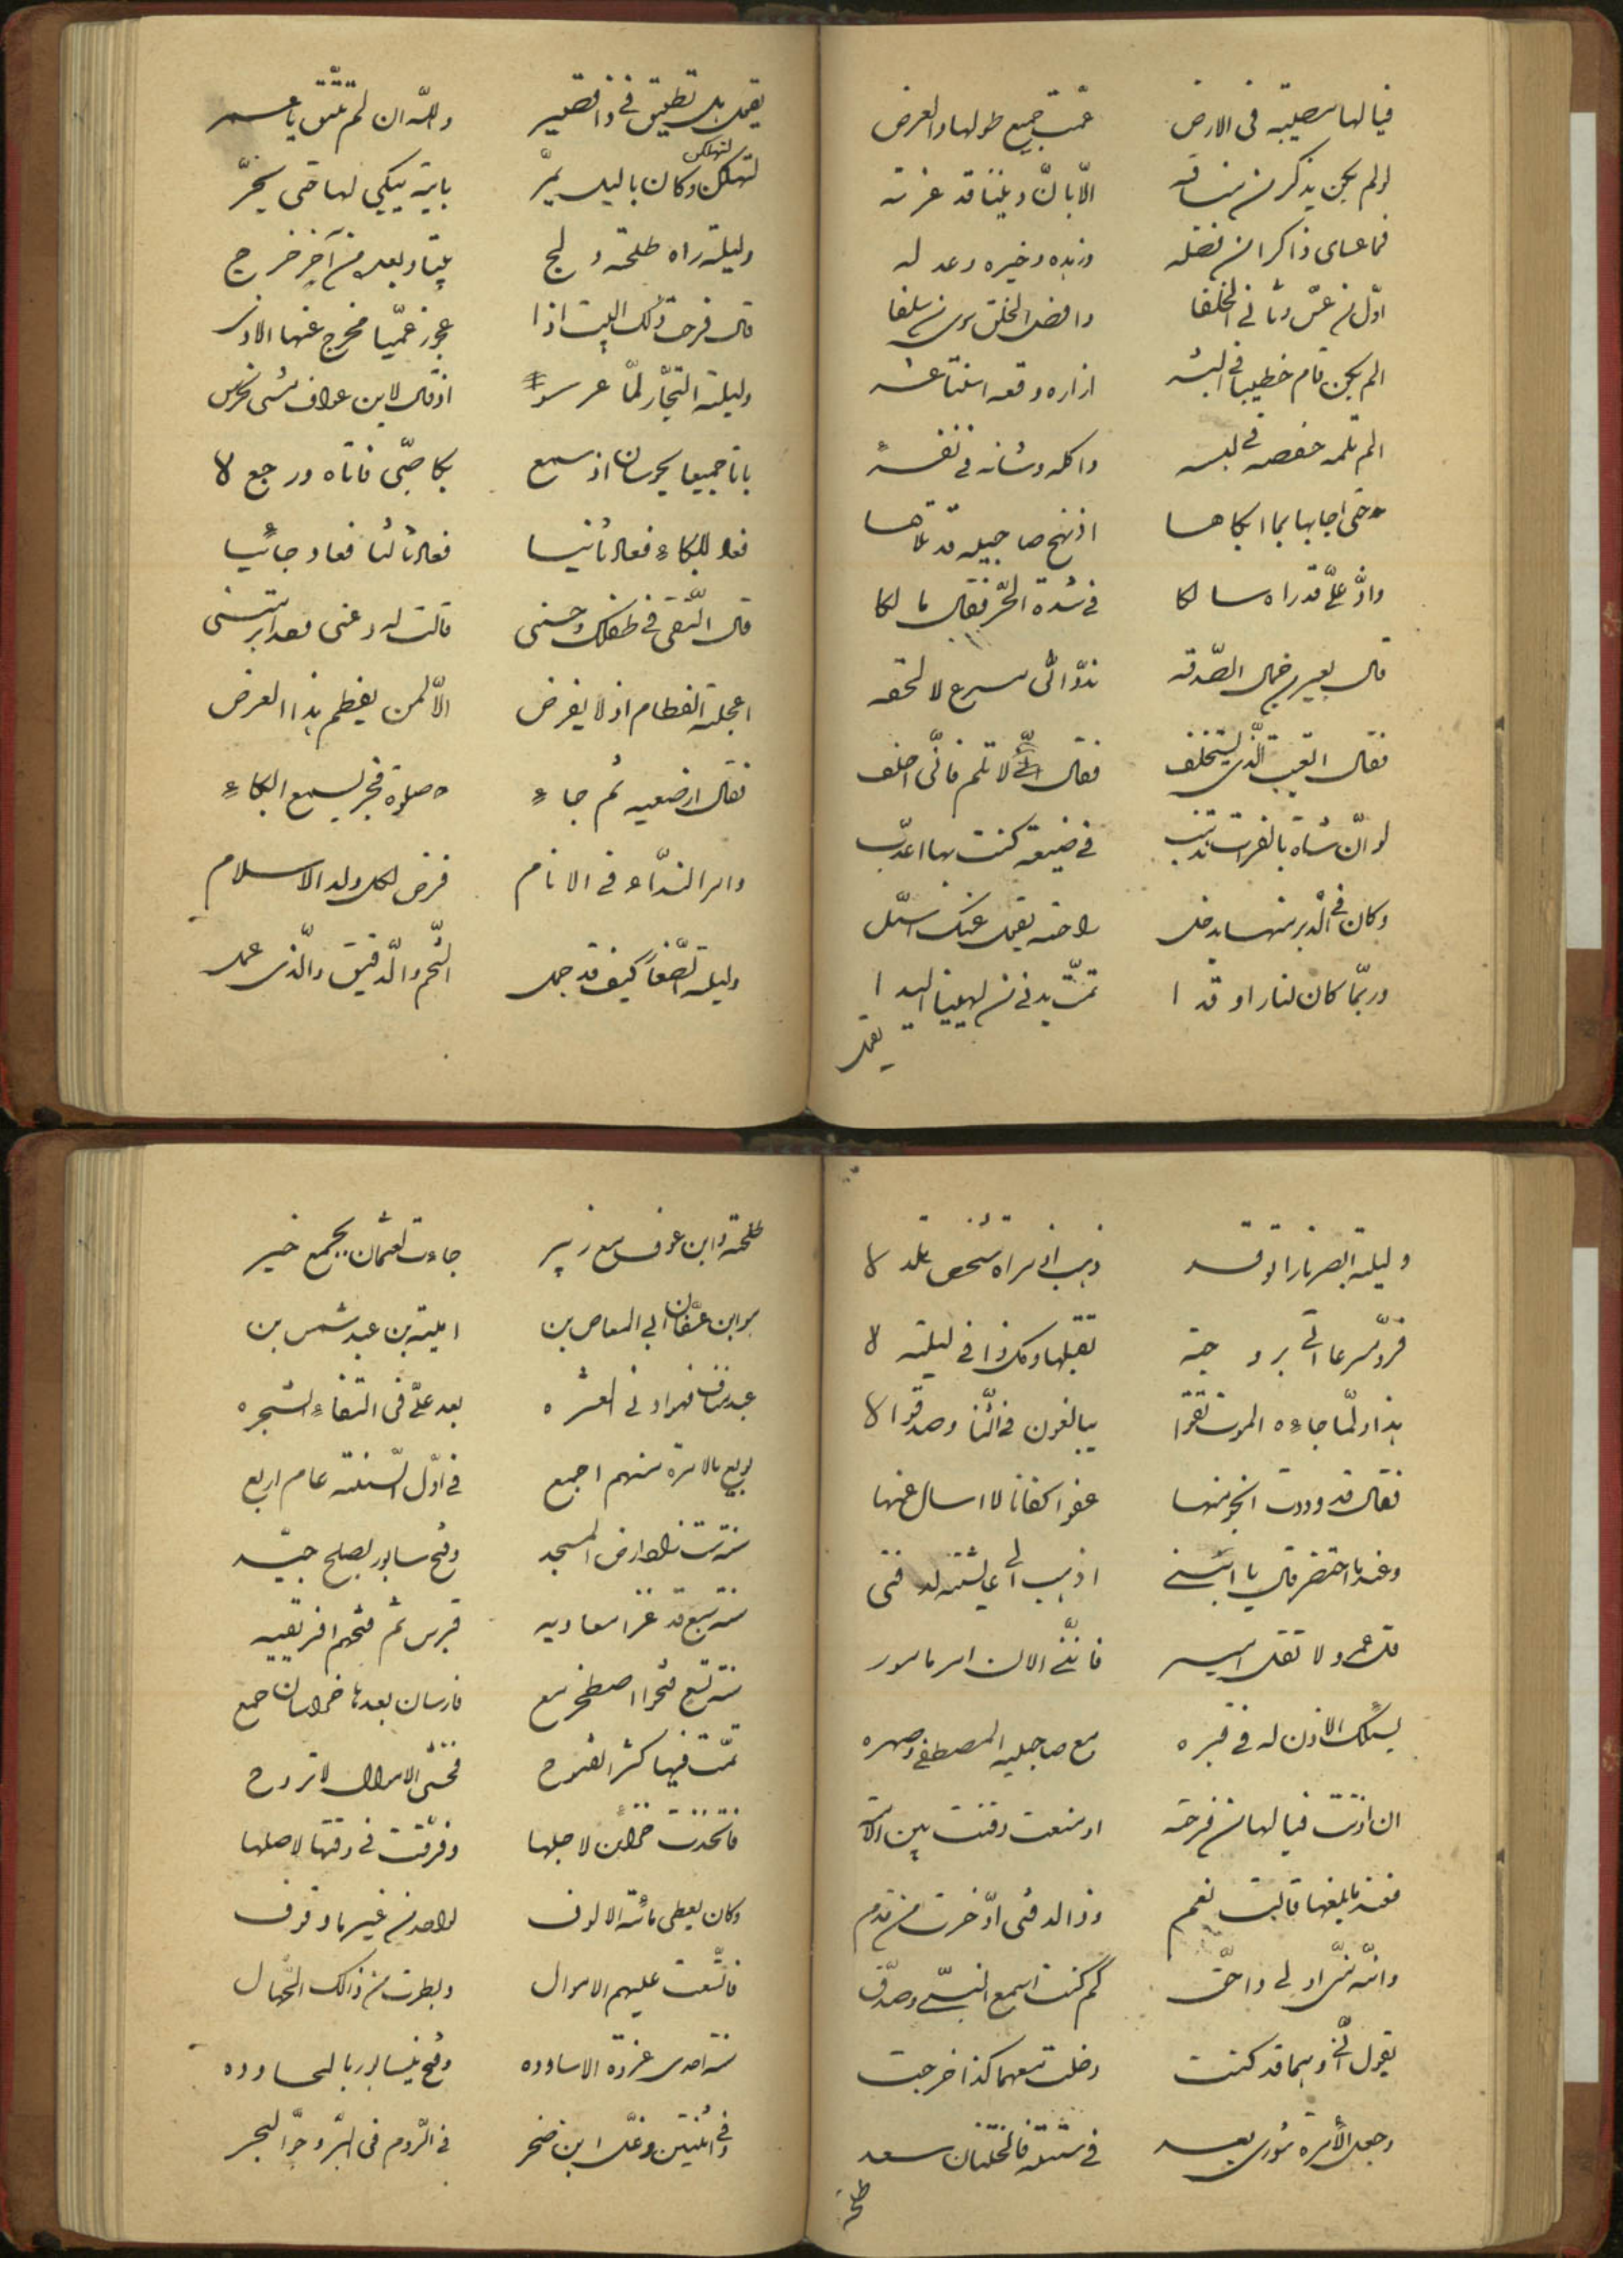 فيا لها مصيبة في الارض عمّت جميع طولها والعرض
لو لم يكن يذكر من مناقبه الّا بانّ ديننا قد عز به
فما عساى ذاكرا من فضله وزهده وخيره وعدله
اوّل من عسّ وثانى الخلفا وافضل الخلق سوى من سلفا
الم يكن قام خطيبا فى ازاره وقعه اثنتا عشر
الم تلمه حفصه فى لبسه واكله وشانه فى نفسه
حتى اجابها بما ابكاها اذ نهج صاحبيه قد تلاها
واذ علىّ قد راه سالكا فى شدة الحرّ فقال ما لكا
قال بعير من جمال الصّدقه ندّ وانّى مسرع لالحقه
فقال اتعبت الّذى يستخلف فقال لا تلم فانّى اخلف
لو انّ شاة بالفرات تذهب فى ضيعة كنت بها اعذّب
وكان فى الدبر منها يدخل راحته يقول عنك اسئل
وربّما كان لنار اوقدا تمسّ يدنى من لهيبها اليدا
يقول
يقول هل تطيق فى ذا تصبر والله ان لم تتّق يا عمر
لتهلكن وكان بالليل يمرّ باية يبكي لها حتى يخرّ
لتهلكن
وليلة راه طلحة ولج بيتا وبعد من آخر خرج
قال فرحت ذلك البيت اذا عجوز عميا مخرج عنها الاذى
وليلة التجّار لمّا عرسوا اذ قال لابن عوف نحرس
باتا جميعا يحرسان اذ سمع بكا صبّى فاتاه ورجع لا
فعاد للبكاء فعاد ثانيا فعاد ثالثا فعاد جائيا
قال اتّقى في طفلك وحسنى قالت له دعنى فقد ابرمتنى
اعجلته الفطام اذ لا يفرض الّا لمن يفطم هذا العرض
فقال ارضعيه ثم جاء صلوة فجر يسمع البكاء
وامر النداء في الانام فرض لكل ولد الاسلام
وليلة كيف قد حمل الشحم والدّقيق والّذى عمل
وليلة ابصر نارا توقد ذهب الى مراة شخص تلد لا
فردّ مسرعا الى زوجته تقبلها وكل ذا في ليلته لا
هذا ولمّا جاءه الموت يبالغون فى الثّنا وصدقوا لا
فقال قد وددت انجو منها عفوا كفافا لا اسال عنها
وعندما احتضر قال يا ابنى اذهب الى عايشة لدفنى
قل عمر ولا تقل امير فانّنى الان امر مامور
يسئلك الاذن له فى قبره مع صاحبيه المصطفى وصهره
ان اذنت فيا لها من فرحة او منعت دفنت بين الامة
فعندما بلغها قالت نعم وذا لدفنى ادّخرت من قدم
وانّه منّى اولى واحقّ كم كنت اسمع النبىّ وصدق
يقول انّى وهما قد كنت دخلت معهما كذا خرجت
وجعل الامرة شورى بعد فى ستة فالختنان سعد
طلحة
طلحة وابن عوف مع زبير جاءت لعثمان بجمع خير
هو ابن عفّان ابي العاص بن امية بن عبد شمس بن
عبد مناف فهو اد في العشره بعد علىّ فى التقاء الشجره
بويع بالامرة منهم اجمع فى اوّل السّنة عام اربع
سنة ست زاد ارض المسجد وفتح سابور بصلح جيّد
سنة سبع قد غزا معاويه قبرس ثم فتحهم افريقيه
سنة تسع فتحوا اصطخر مع فارسان بعدها خراسان جمع
تمّت فيها كثر الفتوح فخشى الاموال لا تروح
فاتّخذت خزاين لاجلها وفرّقت فى وقتها لاصلها
وكان يعطى مائة الالوف لواحد من غير ما وقوف
فاتّسعت عليهم الاموال وبطرت من ذالك الجهّال
سنة احدى غزوة الاساوده وفتح نيسابور بالمعاوده
وفى اثنتين وغل ابن صخر فى الرّوم فى البرّ وجرّ البحر